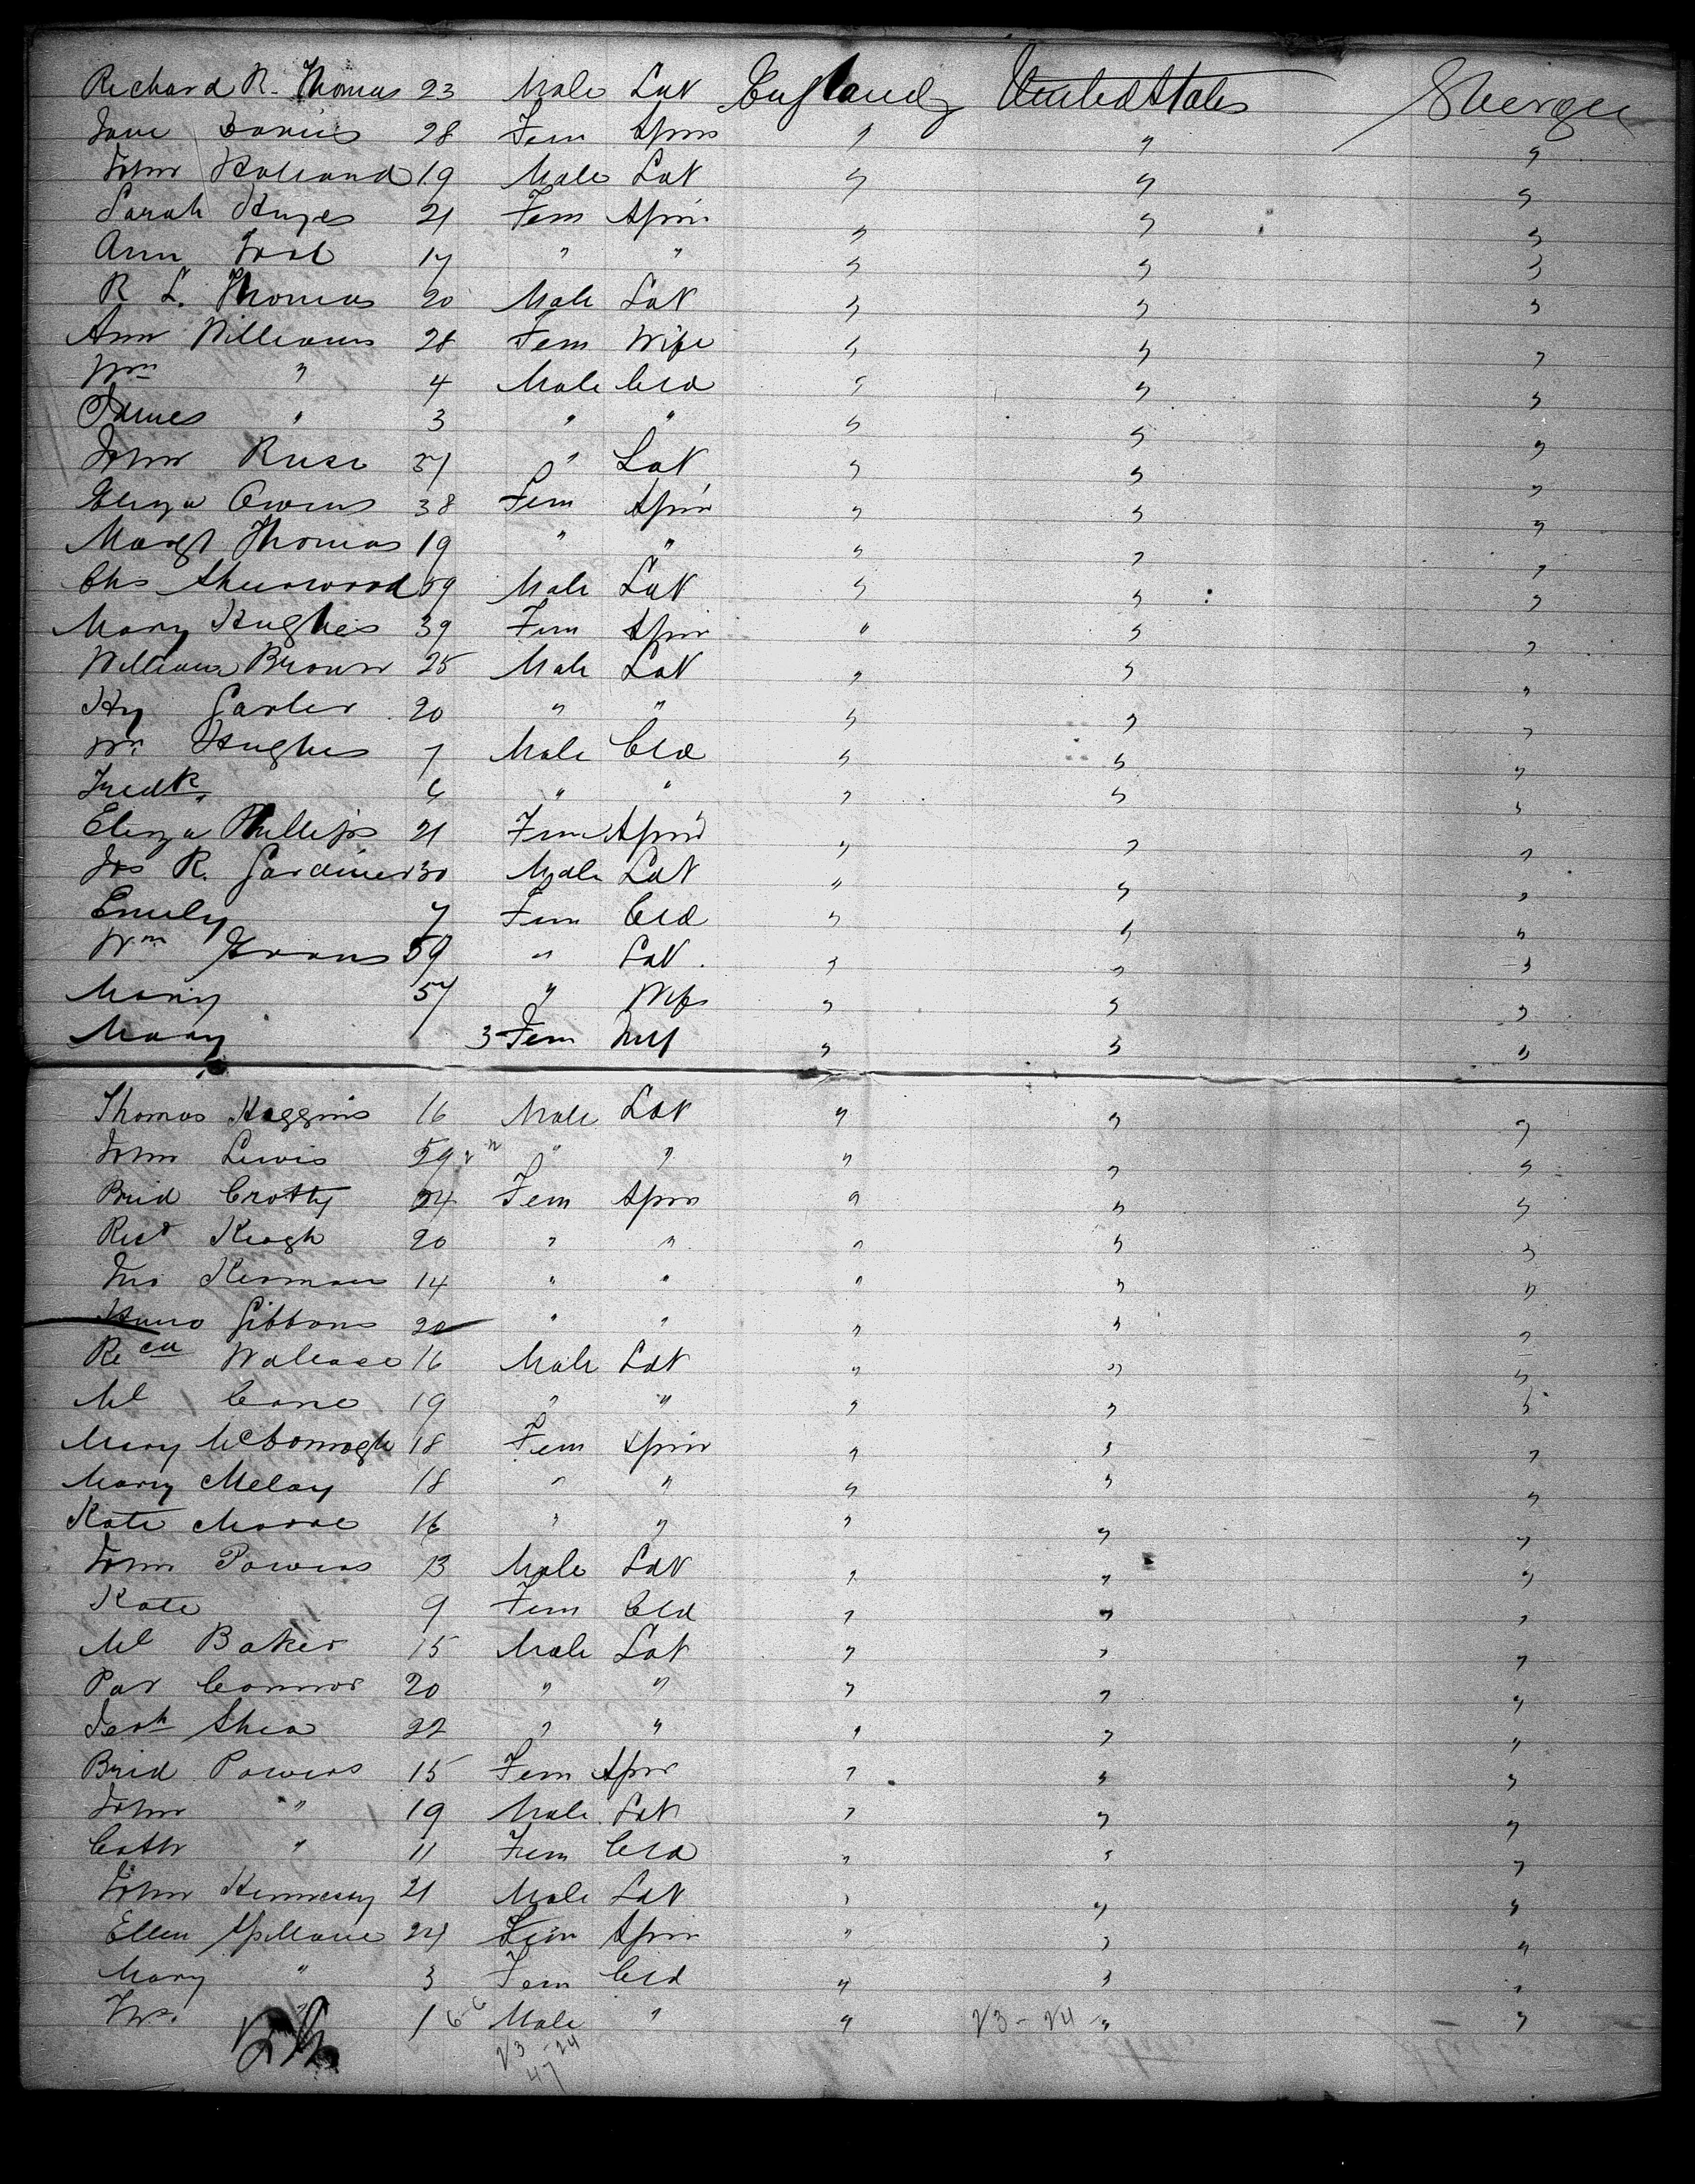 Richard R. Thomas 23 Male Lab England United States Steerage
Jane Davies 28 Fem Spin " " "
John Holland 19 Male Lab " " "
Sarah Hayes 21 Fem Spin " " "
Ann 17 " " " " "
R L. Thomas 20 Male Lab " " "
Ann Williams 28 Fem Wife " " "
Wm " 4 Male Cld " " "
James " 3 " " " " "
John Ruse 51 " Lab " " "
Eliza Owens 38 Fem Spin " " "
Margt Thomas 19 " " " " "
Chs Sherwood 59 Male Lab " " "
Mary Hughes 39 Fem Spin " " "
William Brown 25 Male Lab " " "
Hy 20 " " " " "
Wm Hughes 7 Male Cld " " "
Fredk " 6 " " " " "
Eliza Phillips 21 Fem Spin " " "
Jos R. Gardiner 30 Male Lab " " "
Emily 7 Fem Cld " " "
Wm Evans 59 " Lab " " "
Mary 57 " Wife " " "
Mary 3 Fem " " "
Thomas Haggins 16 Male Lab " " "
John Lewis 59 " " " " "
Brid Crotty 24 Fem Spin " " "
Keogh 20 " " " " "
Jno 14 " " " " "
Gibbons 20 " " " " "
Wallace 16 Male Lab " " "
Ml Cane 19 " " " " "
Mary McDonnogh 18 Fem Spin " " "
Mary Meloy 18 " " " " "
Kate Moore 16 " " " " "
John Powers 13 Male Lab " " "
Kate 9 Fem Cld " " "
Ml Baker 15 Male Lab " " "
Pat Connor 20 " " " " "
Shea 22 " " " " "
Brid Powers 15 Fem Spin " " "
John " 19 Male Lab " " "
Cath " 11 Fem Cld " " "
John Hennessy 21 Male Lab " " "
Ellen Spillane 24 Fem Spin " " "
Mary " 3 Fem Cld " " "
Wm " 1 6-6 Male " " 23-24 " "
23-24
47